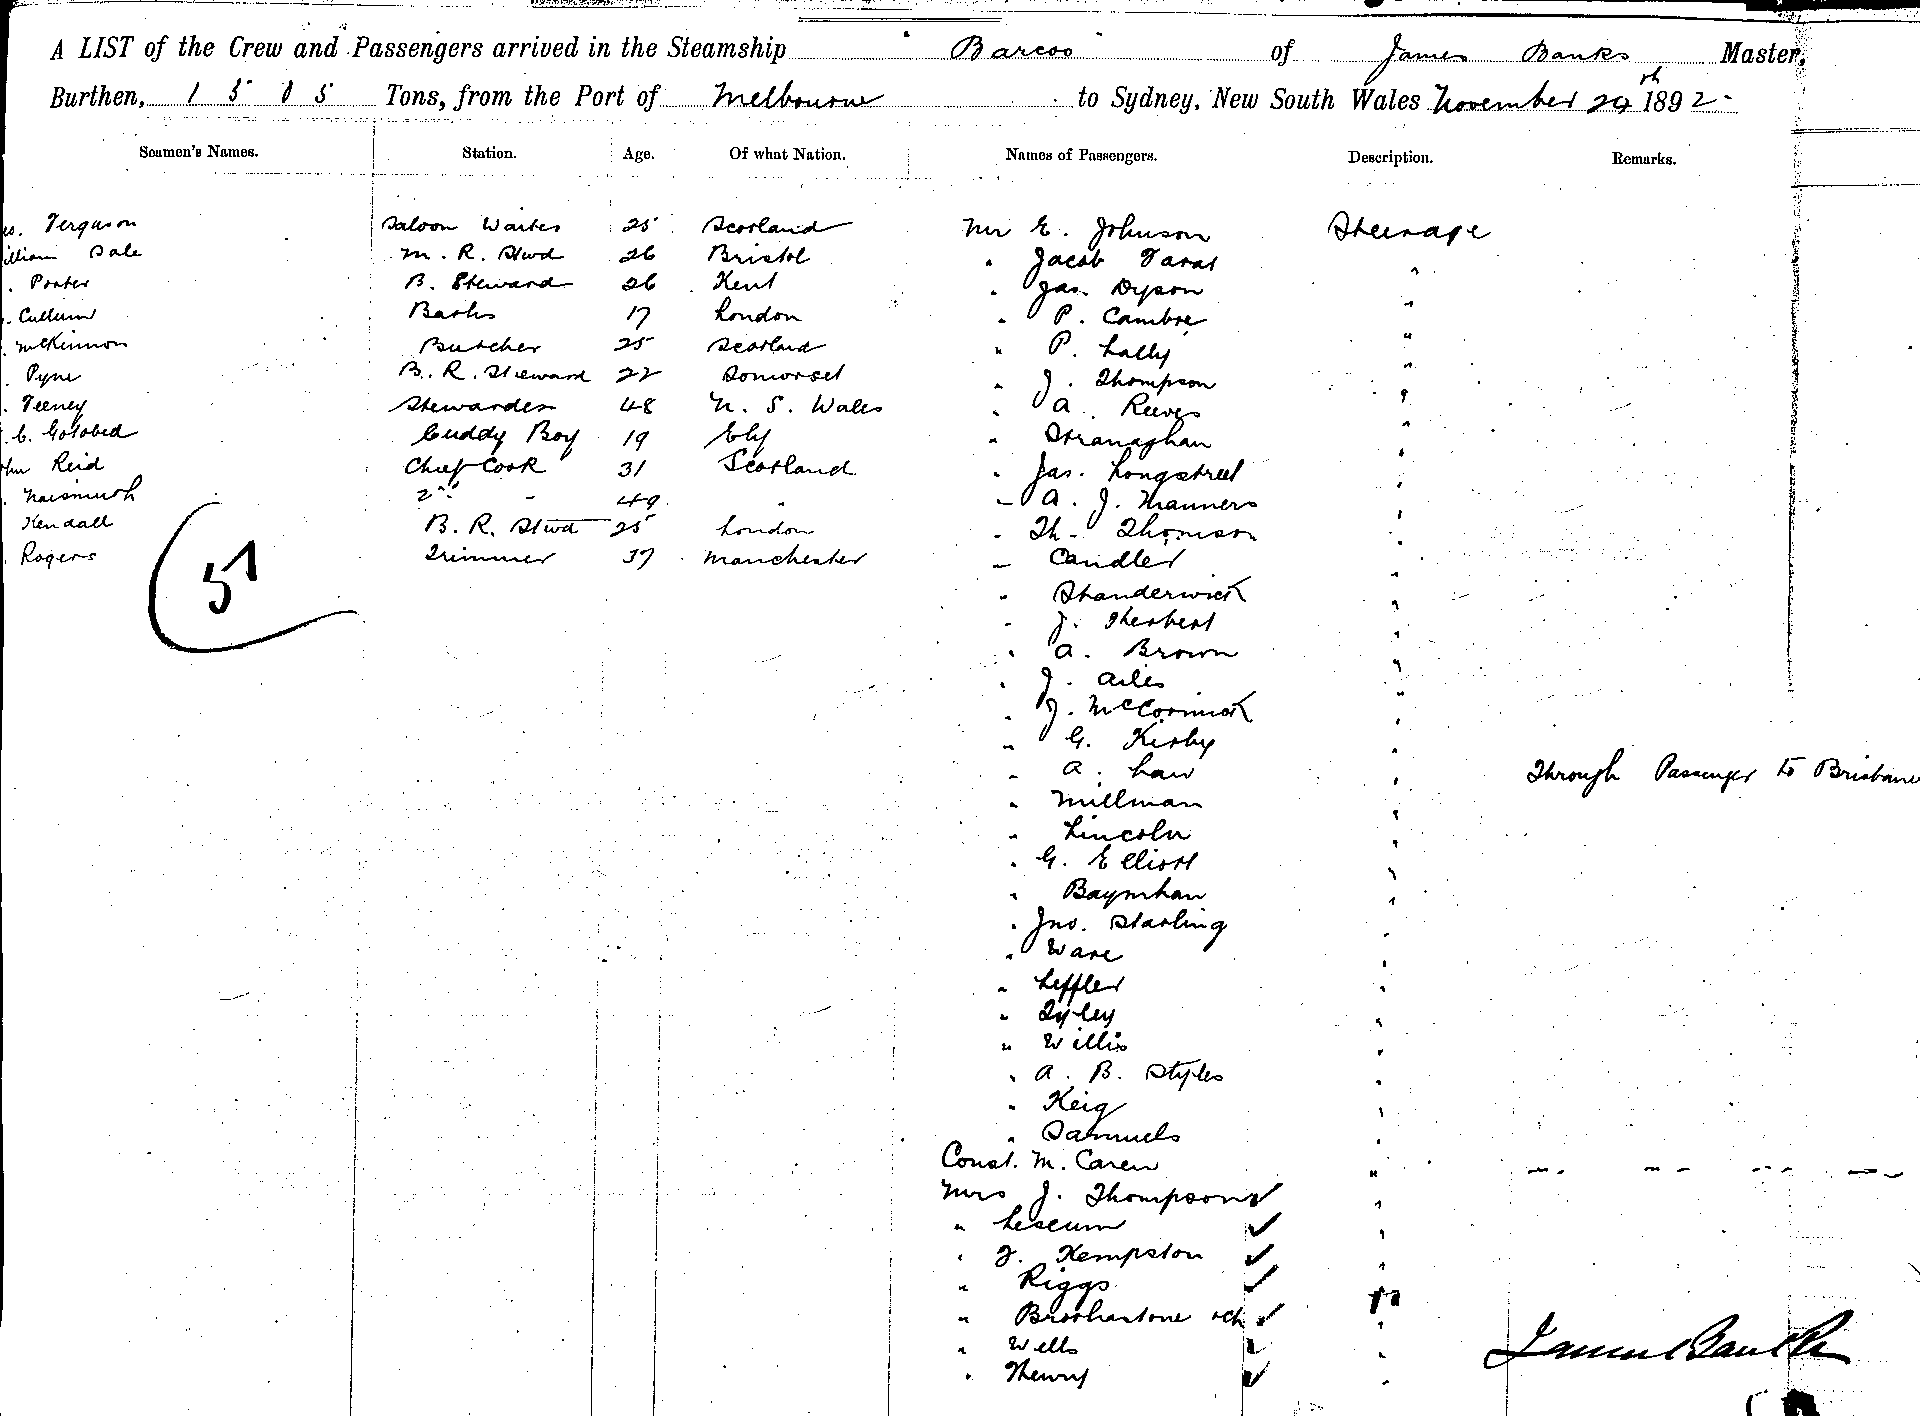 A LIST of the Crew and Passengers arrived in the Steamship "Barcoo" of James Banks Master,
Burthen, 1505 Tons, from the Port of Melbourne to Sydney, New South Wales November 29th 1892
Seamen's Names. Station. Age. Of what Nation. Names of Passengers. Description. Remarks.
Ferguson Saloon Waiter 25 Scotland Mr E. Johnson Steerage
illiam Dale M. R. Stwd 26 Bristol " Jacob "
Porter B. Steward 26 Kent " Jas. Dyson "
Cullum 17 London " P. Cambre "
McKinnon Butcher 25 Scotland " P. Lally "
Pyne B. R. Steward 22 Somerset " J. Thompson "
Feeney Stewardess 48 N. S. Wales " A. Reeves "
C. Gotobed Cuddy Boy 19 Ely " Stranaghan "
ohn Reid Chief Cook 31 Scotland " Jas. Longstreet "
Naismith 2nd " 49 " " A. J. Manners "
Kendall B. R. Stwd 25 London " Th. Thomson "
Rogers Trimmer 37 Manchester " Candler "
57
" Standerwick "
" J. Herbert "
" A. Brown "
" J. Ailes "
" J. McCormick "
" G. Kirby "
" A. Law " Through Passenger to Brisbane
" Millman "
" Lincoln "
" G. Elliott "
" Baynham "
" Jno. Starling "
" Ware "
" Leffler "
" Tyley "
" Willis "
" A. B. Styles "
" Keig "
" Samuels "
Const. M. Caren " " " " "
Mrs J. Thompson ✓ "
" ✓ "
" Kempston ✓ "
" Riggs ✓ "
" ✓ "
" Wells ✓ "
" Henry ✓ "
James Banks